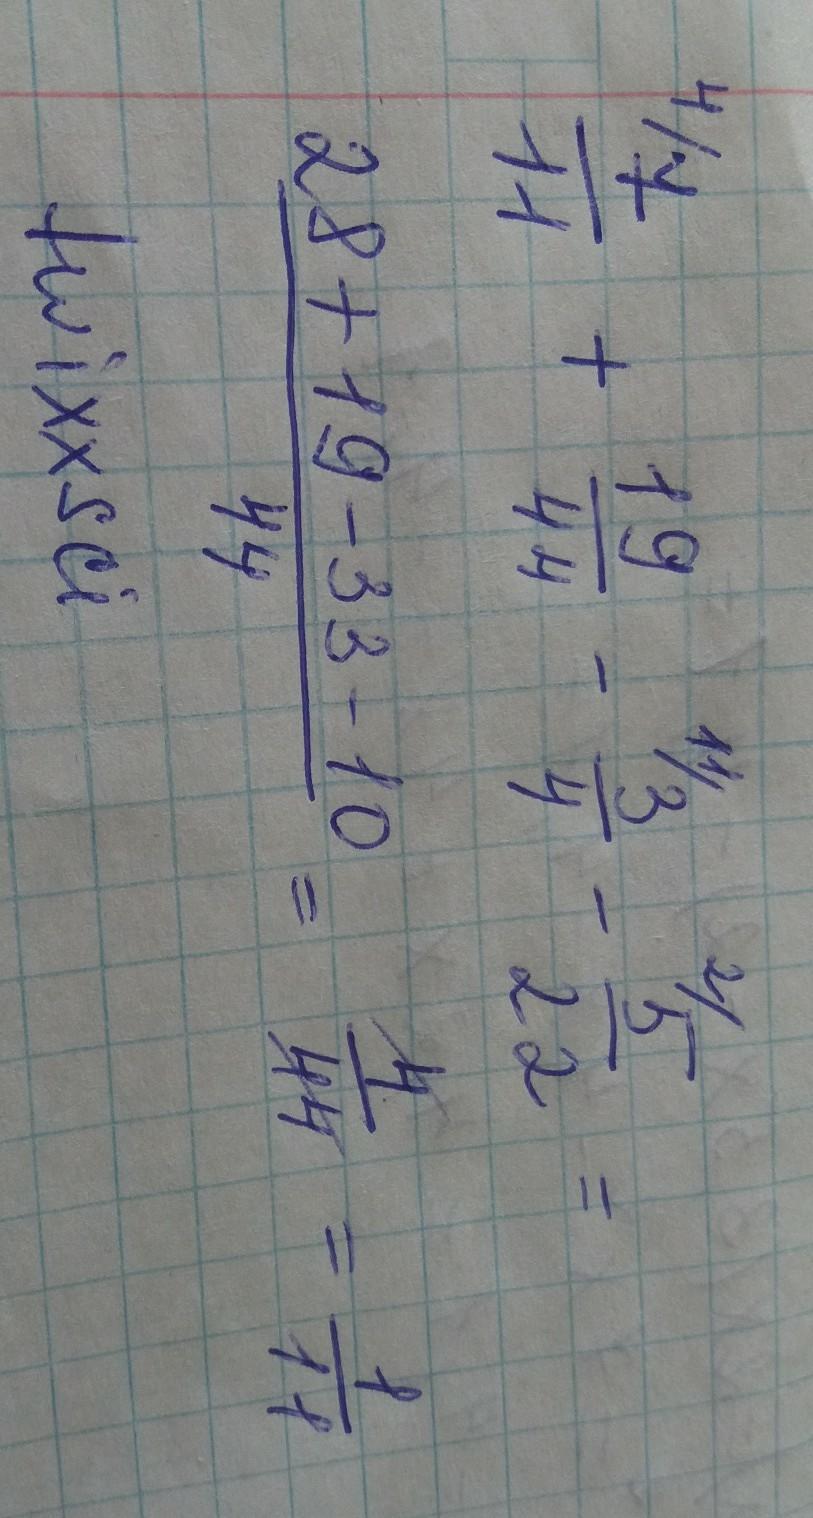 4/ 7/11 + 19/44 - 11/ 3/4 - 2/ 5/22 =
28 + 19 - 33 - 10 / 44 = 4/44 = 1/11
twixxsci